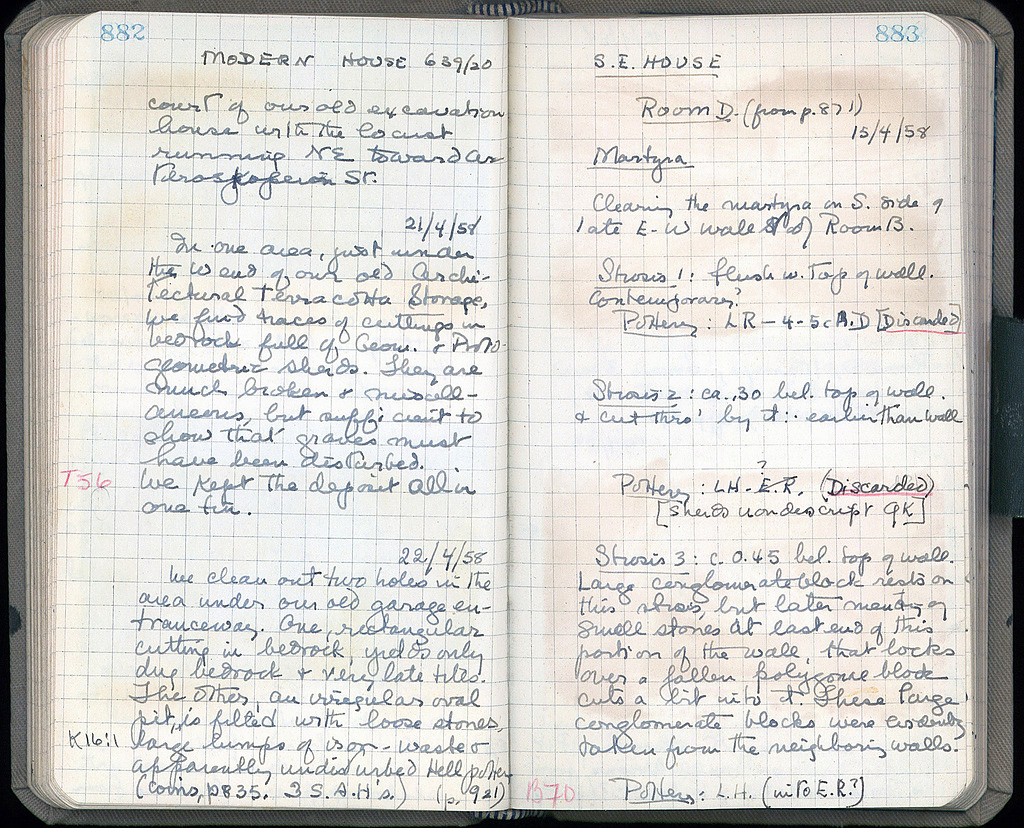 882
MODERN HOUSE 639/20
court of our old excavation
house with the locust
running NE toward
St.
21/4/58
In one area, just under
the W end of our old Archi-
tectural Terracotta Storage,
we find traces of cuttings in
bedrock full of Geom. & Proto-
geometric sherds. They are
much broken & miscell-
aneous, but sufficient to
show that graves must
have been disturbed.
T56
We kept the deposit all in
one tin.
22/4/58
We clean out two holes in the
area under our old garage en-
tranceway. One, rectangular
cutting in bedrock, yields only
dug bedrock & very late tiles.
The other, an irregular oval
pit, is filled with loose stones,
K16:1
large lumps of iron-waste &
apparently undisturbed Hell pottery
(coins, p835: 3 S.A.H's.) (p. 921)
883
S.E. HOUSE
Room D. (from p. 871)
15/4/58
Martyra
Clearing the martyra on S. side of
late E-W wall S of Room B.
Strosis 1: flush w. top of wall.
Contemporary?
Pottery: LR - 4-5c A.D [Discarded]
Strosis 2: ca. .30 bel. top of wall.
& cut thro' by it: earlier than wall
?
Pottery: LH-E.R. (Discarded)
[sherds nondescript GK]
Strosis 3: c. 0.45 bel. top of wall.
Large conglomerate block rests on
this strosis, but later mending of
small stones at east end of this
portion of the wall, that locks
over a fallen polygonal block
cuts a bit into it. These large
conglomerate blocks were evidently
taken from the neighboring walls.
B70
Pottery: L.H. (into E.R.?)